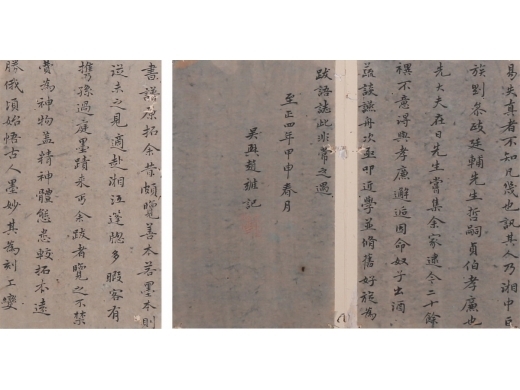 書譜原拓余嘗頗覽善本若墨本則
從未之見適赴湘江蓬牕多暇客有
攜孫過庭墨蹟來丐余跋者覽之不禁
贊為神物蓋精神體態悉較拓本遠
勝俄頃始悟古人墨妙其為刻工變
易失真者不知凡幾也訊其人乃湘中巨
族劉參政廷輔先生哲嗣貞伯孝廉也
先大夫在日先生嘗集余家迄今二十餘
禩不意得與孝廉邂逅因命奴子出酒
蔬談讌舟次並叩近學並脩舊好旋為
跋語誌此非常之遇
至正四年甲申春月
吳興趙雍記